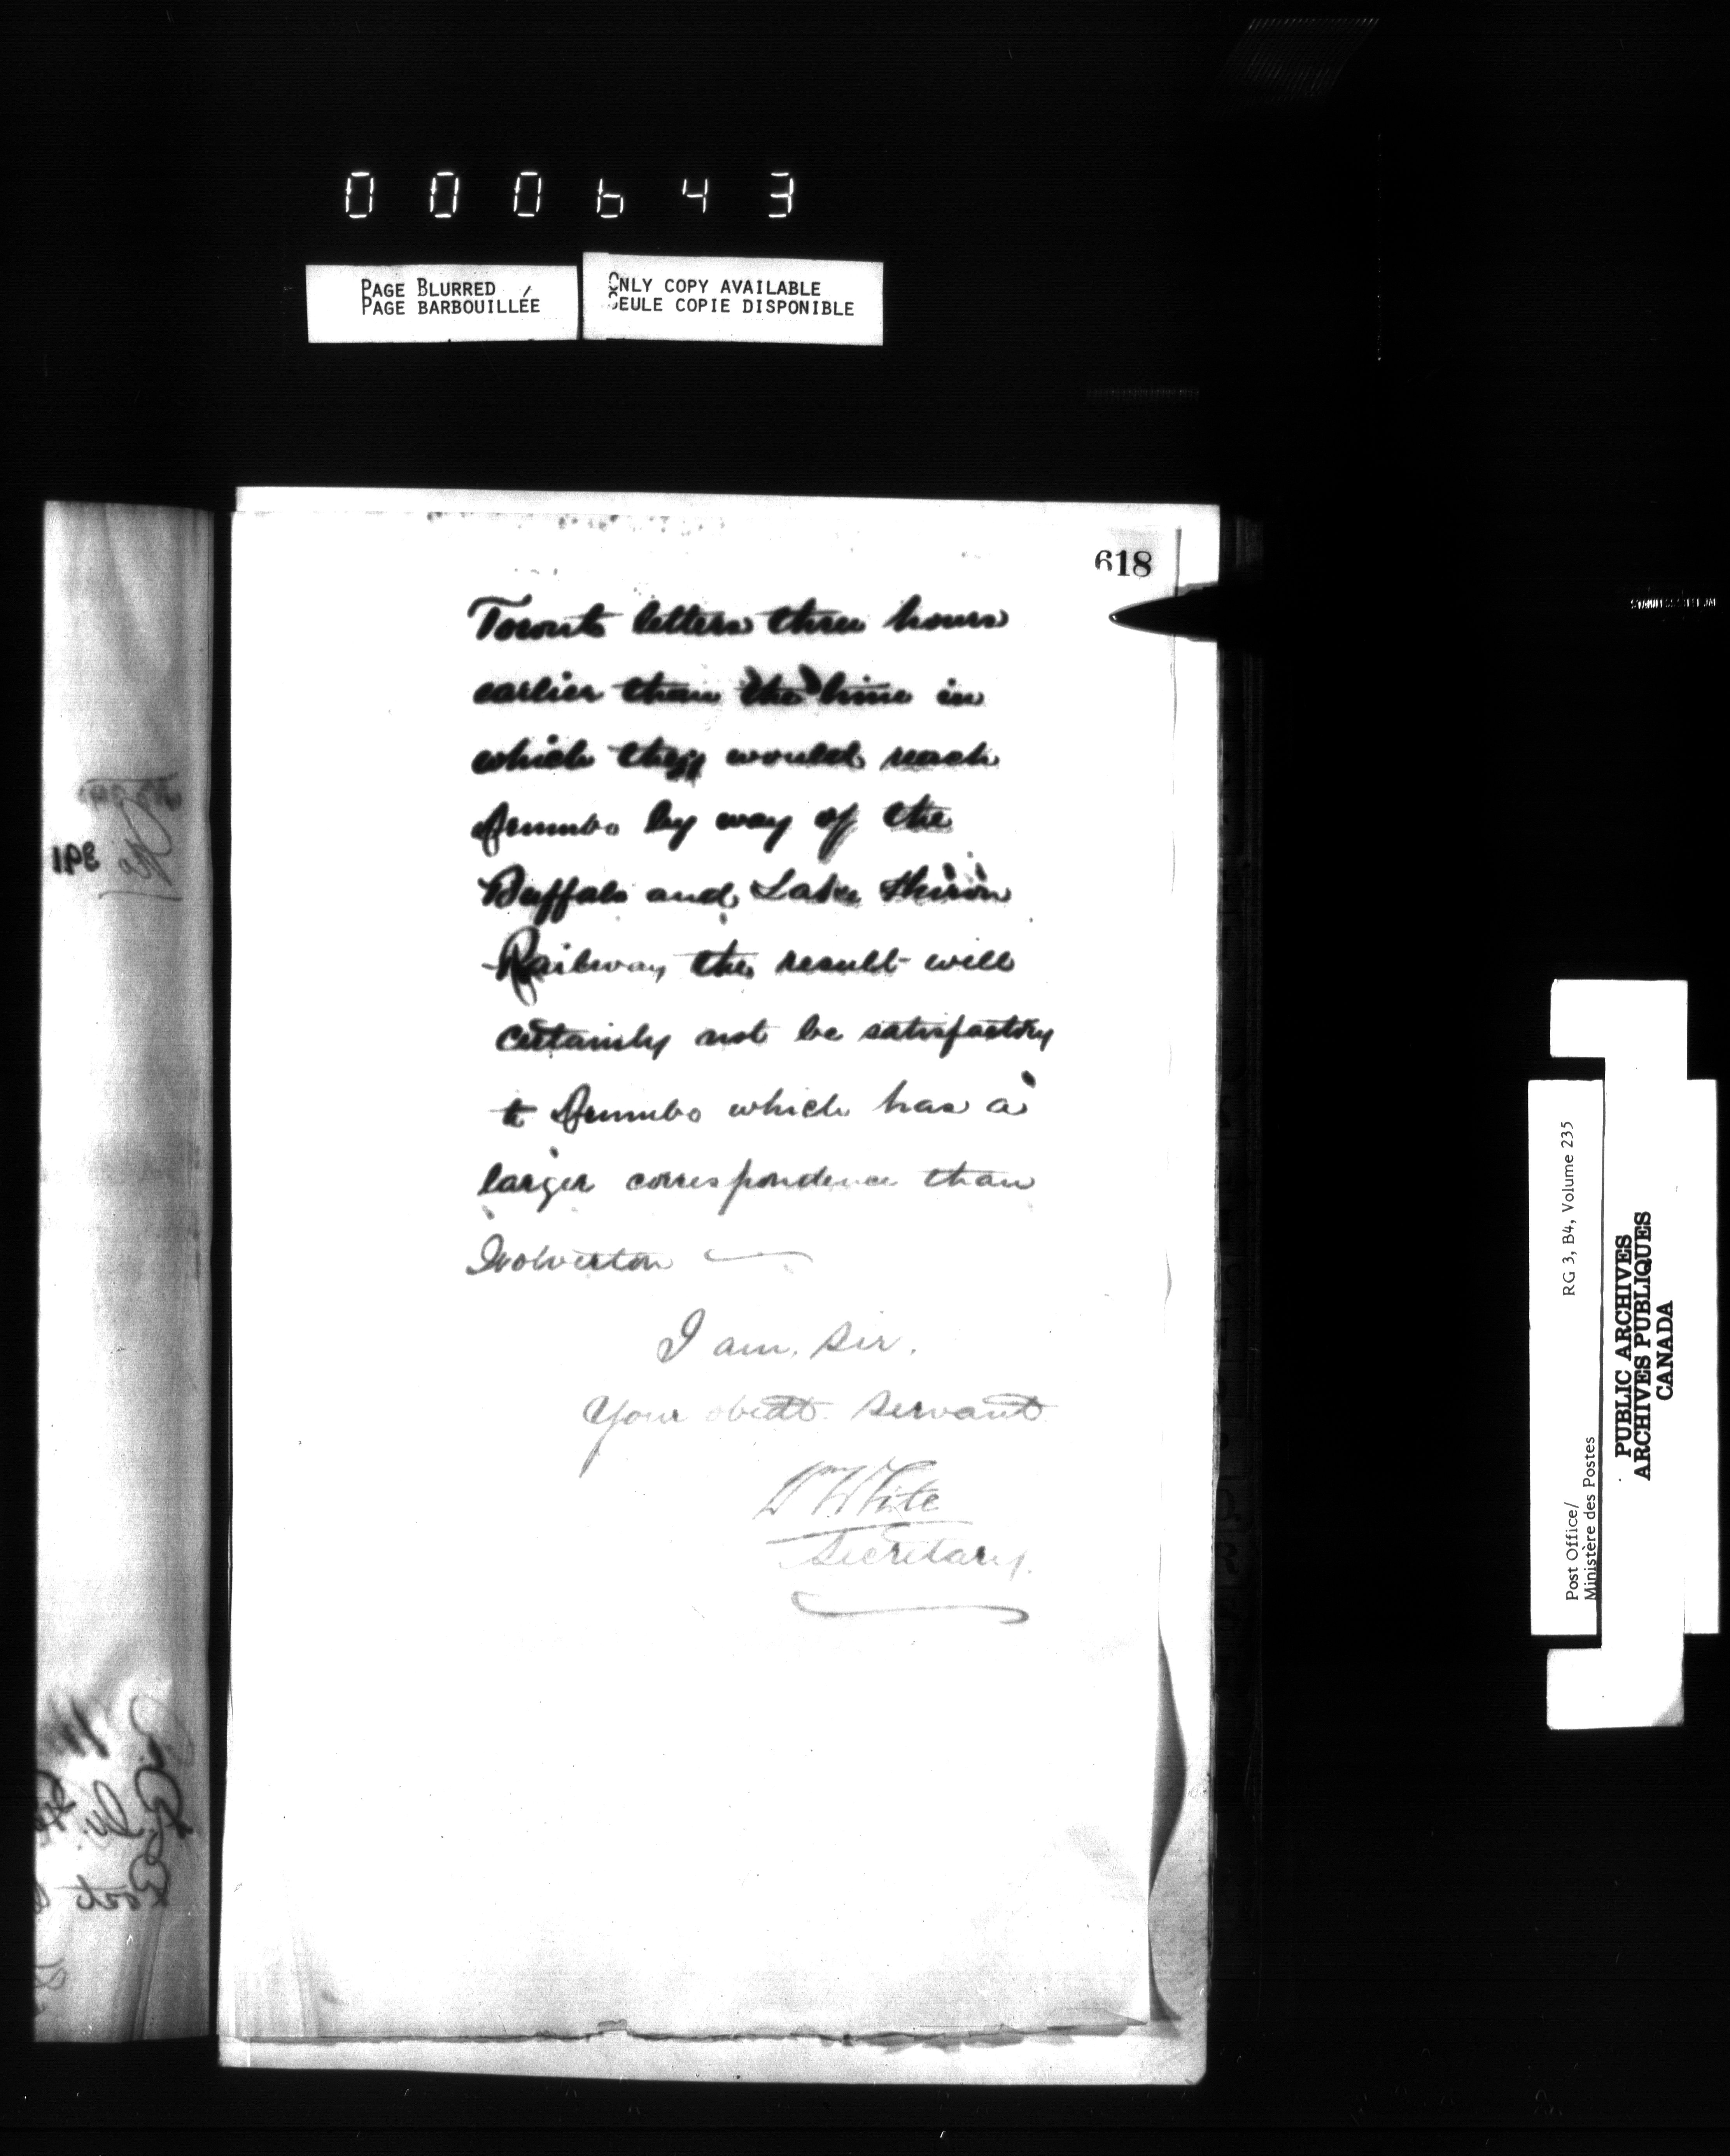 000643
PAGE BLURRED /
PAGE BARBOUILLÉE
ONLY COPY AVAILABLE
SEULE COPIE DISPONIBLE
618
Toronto letters three hours
earlier than the time in
which they would reach
Drumbo by way of the
Buffalo and Lake Huron
Railway the result will
certainly not be satisfactory
to Drumbo which has a
larger correspondence than
Wolverton —
I am, Sir,
Your obedt. Servant
Wm White
Secretary.
391
Post Office/
Ministère des Postes
RG 3, B4, Volume 235
PUBLIC ARCHIVES
ARCHIVES PUBLIQUES
CANADA